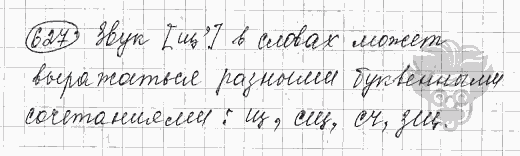 627) Звук [щ'] в словах может
выражаться разными буквенными
сочетаниями: щ, сщ, сч, зщ.